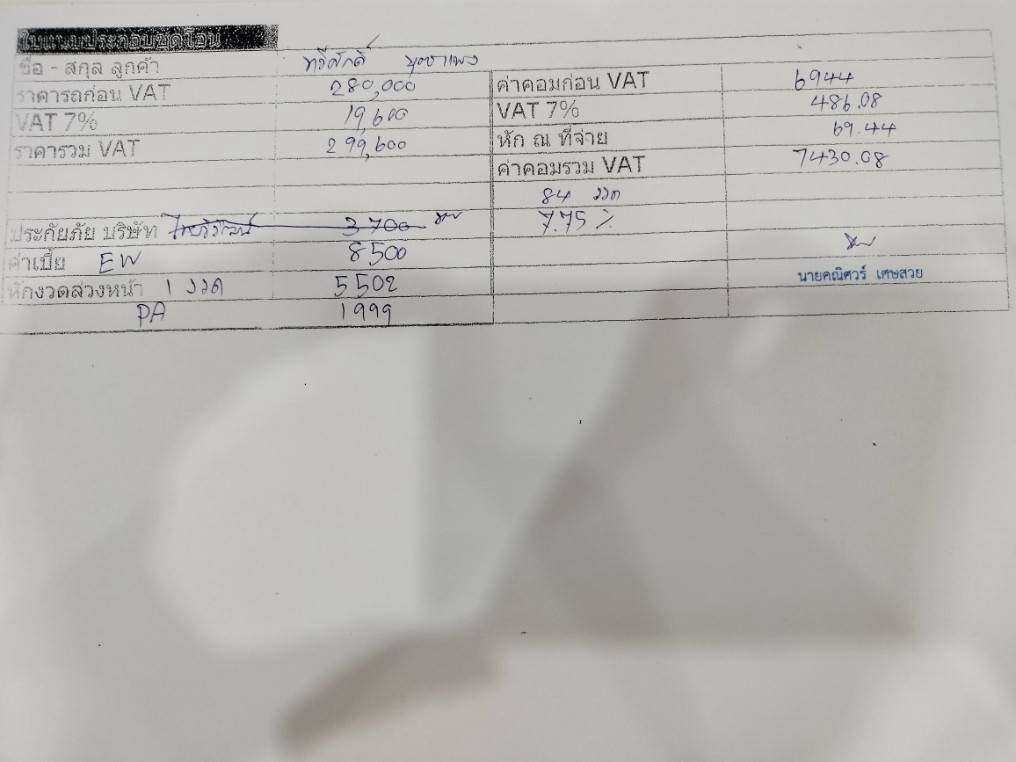 ใบแนบประกอบชุดโอน
ชื่อ - สกุล ลูกค้า ทวีศักดิ์
ราคารถก่อน VAT 280,000 ค่าคอมก่อน VAT 6944
VAT 7% 19,600 VAT 7% 486.08
ราคารวม VAT 299,600 หัก ณ ที่จ่าย 69.44
ค่าคอมรวม VAT 7430.08
84 งวด
ประกัยภัย บริษัท ไทยวิวัฒน์ 3700 7.75 %
ค่าเบี้ย EW 8500
หักงวดล่วงหน้า 1 งวด 5502 นายคณิศวร์ เศษสวย
PA 1999